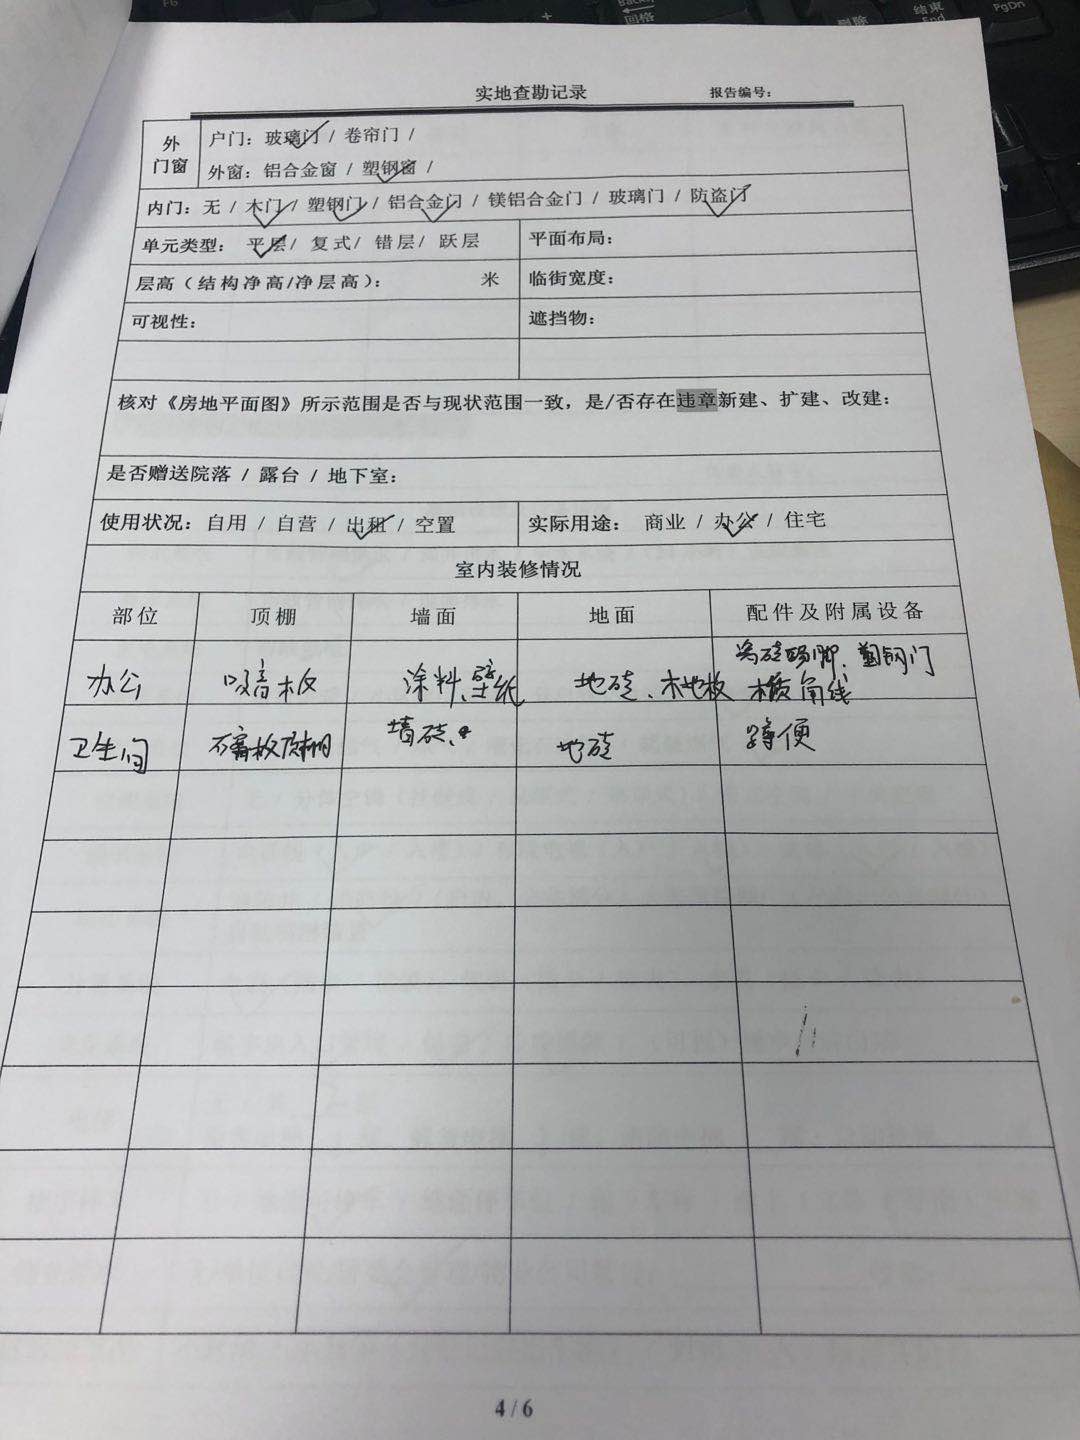 实地查勘记录 报告编号：
外门窗
户门：玻璃门 / 卷帘门 /
外窗：铝合金窗 / 塑钢窗 /
内门：无 / 木门 / 塑钢门 / 铝合金门 / 镁铝合金门 / 玻璃门 / 防盗门
单元类型： 平层/ 复式/ 错层/ 跃层 平面布局：
层高（结构净高/净层高）： 米 临街宽度：
可视性： 遮挡物：
核对《房地平面图》所示范围是否与现状范围一致，是/否存在违章新建、扩建、改建：
是否赠送院落 / 露台 / 地下室：
使用状况：自用 / 自营 / 出租 / 空置 实际用途： 商业 / 办公 / 住宅
室内装修情况
部位 顶棚 墙面 地面 配件及附属设备
瓷砖踢脚、塑钢门
办公 吸音板 涂料、壁纸 地砖、木地板 角线
卫生间 墙砖、 地砖 蹲便
4 / 6